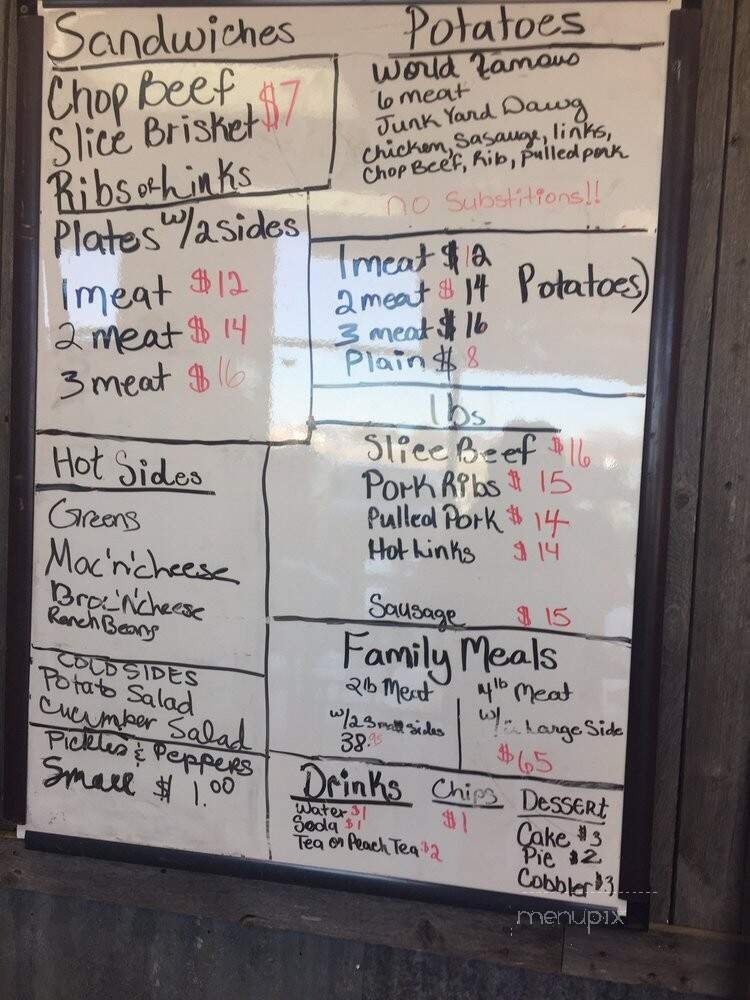 Sandwiches
Chop Beef
Slice Brisket
$7
Ribs or Links
Plates w/2 sides
1 meat $12
2 meat $14
3 meat $16
Hot Sides
Greens
Mac'n'cheese
Broc'n'cheese
Ranch Beans
COLD SIDES
Potato Salad
Cucumber Salad
Pickles & Peppers
Small $1.00
Potatoes
World Famous
6 meat
Junk Yard Dawg
chicken, Sasauge, links,
Chop Beef, Rib, Pulled pork
no Substitions!!
1 meat $12
2 meat $14
3 meat $16
Plain $8
Potatoes)
lbs
Slice Beef $16
Pork Ribs $15
Pulled Pork $14
Hot Links $14
Sausage $15
Family Meals
2lb Meat
w/2 Small sides
38.95
4lb Meat
w/ Large Side
$65
Drinks
Water $1
Soda $1
Tea or Peach Tea $2
Chips
$1
Dessert
Cake $3
Pie $2
Cobbler $3
menupix